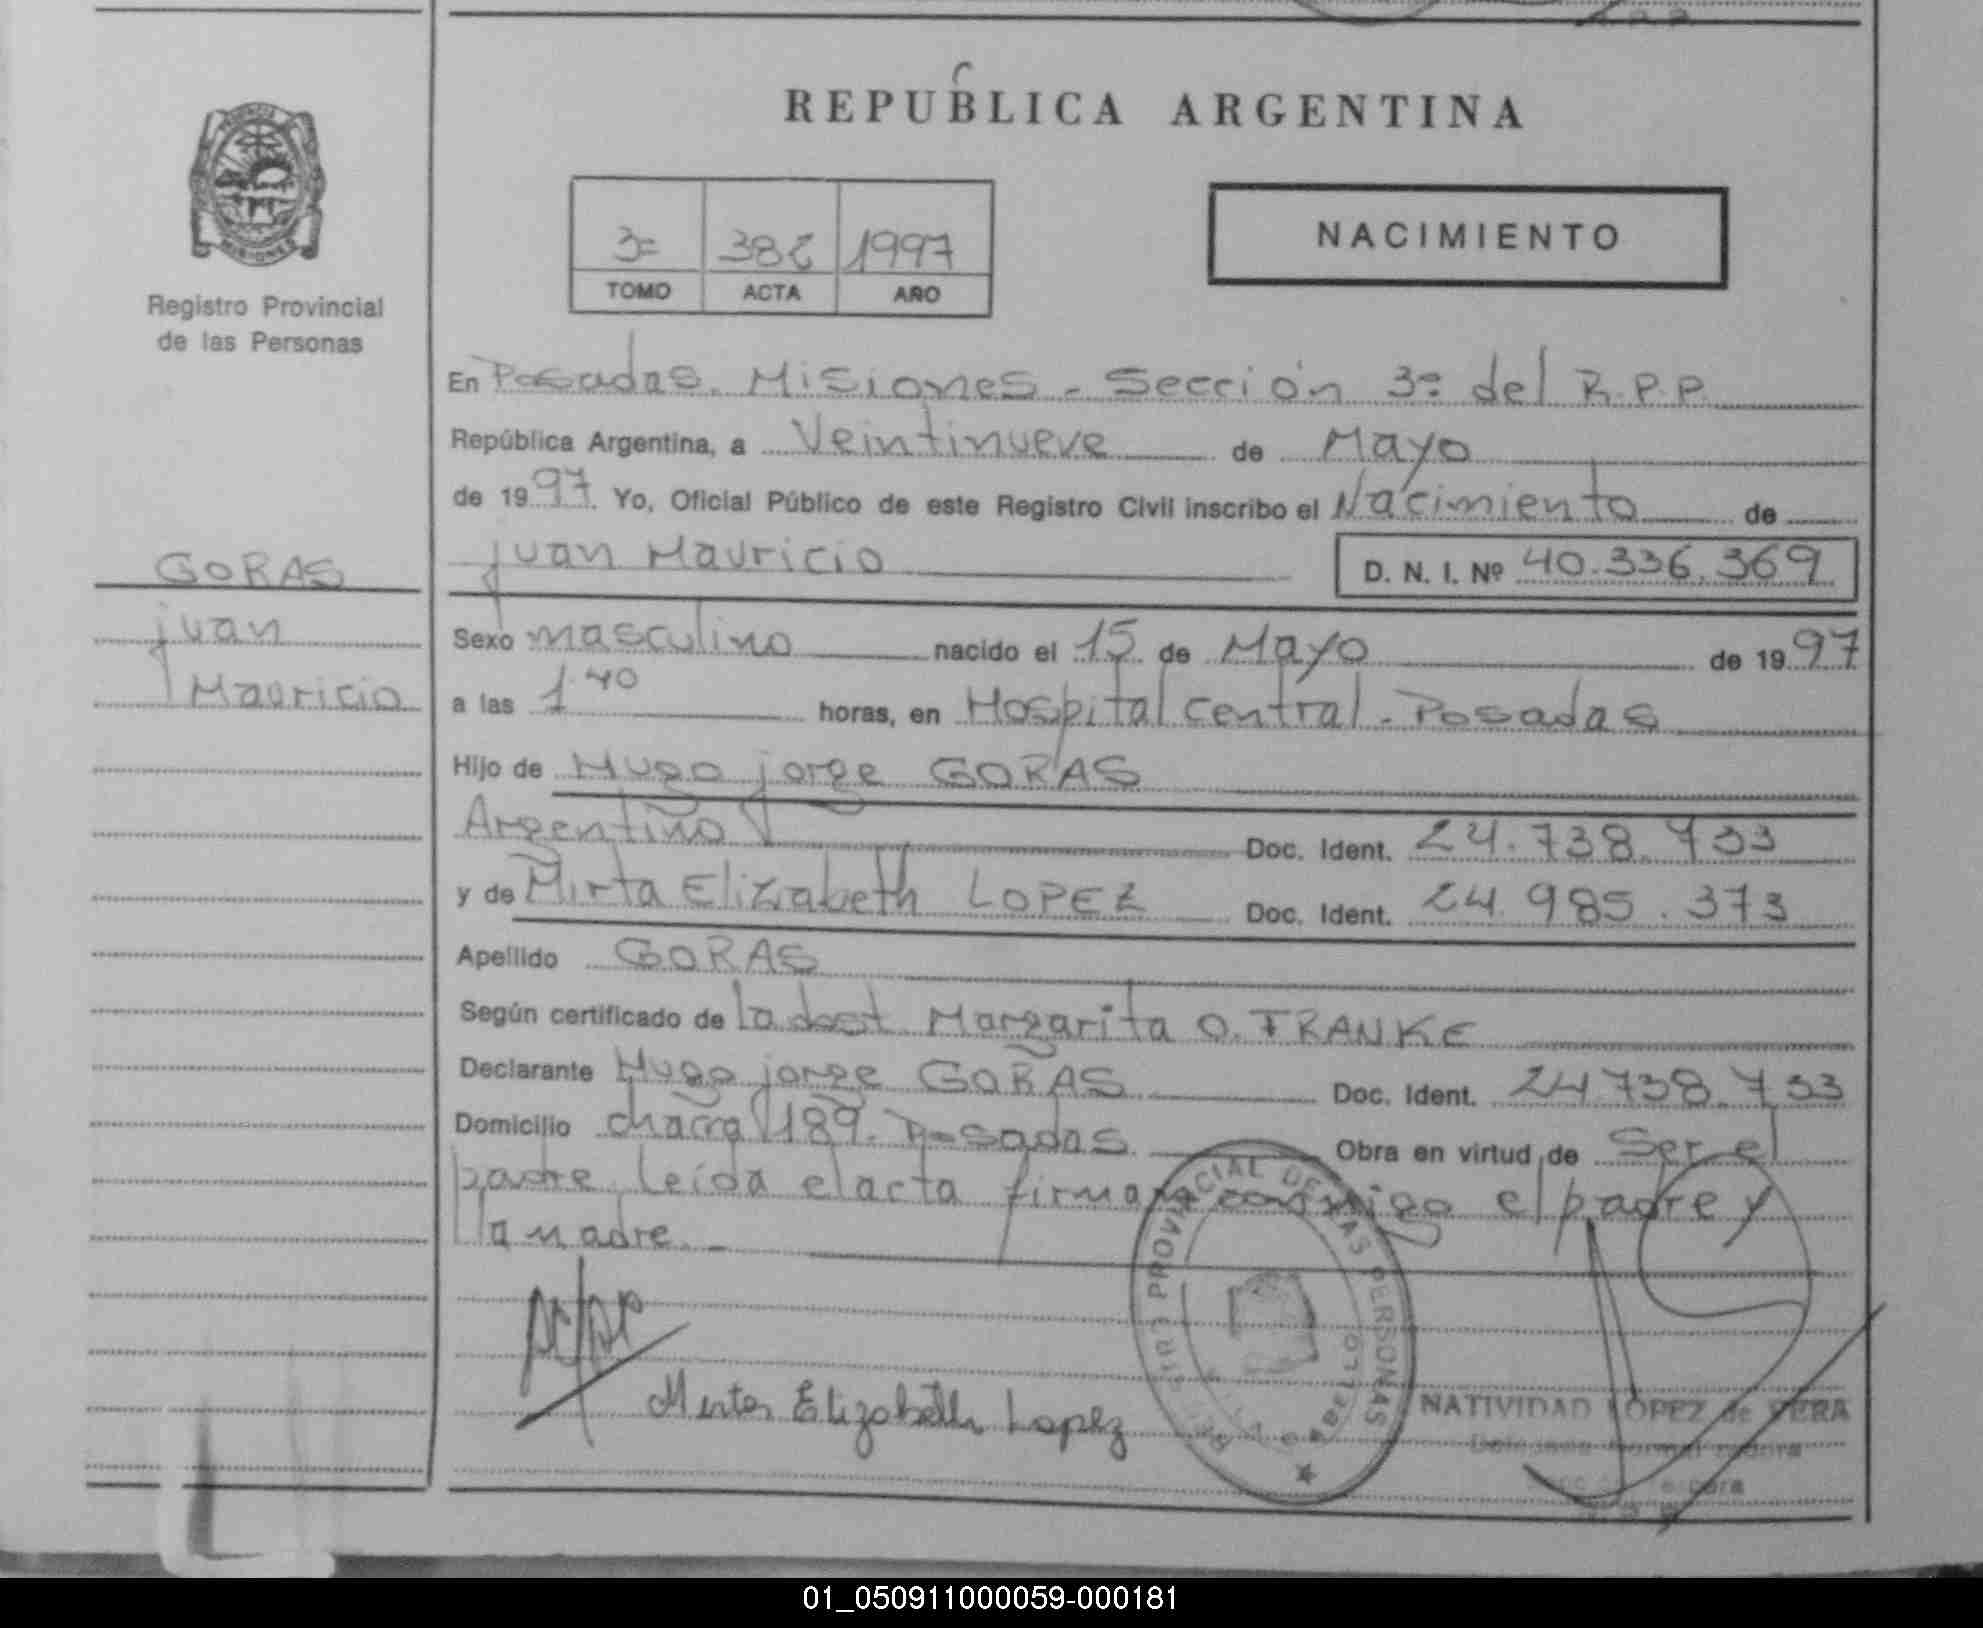 REPUBLICA ARGENTINA
NACIMIENTO
3= 382 1997
TOMO ACTA AÑO
Registro Provincial
de las Personas
En Posadas. Misiones - Sección 3º del R.P.P.
República Argentina, a Veintinueve de Mayo
de 1997. Yo, Oficial Público de este Registro Civil inscribo el Nacimiento de
Juan Mauricio D. N. I. Nº 40.336.369
GORAS
Juan
Mauricio
Sexo masculino nacido el 15 de Mayo de 1997
a las 1.40 horas, en Hospital Central - Posadas
Hijo de Hugo Jorge GORAS
Argentino Doc. Ident. 24.738.733
y de Mirta Elizabeth LOPEZ Doc. Ident. 24.985.373
Apellido GORAS
Según certificado de la dost Margarita O. FRANKE
Declarante Hugo Jorge GORAS Doc. Ident. 24.738.733
Domicilio chacra 189. Posadas Obra en virtud de Ser el
padre leída el acta firman conmigo el padre y
la madre. -
Mirta Elizabeth Lopez
PROVINCIAL DE LAS PERSONAS
NATIVIDAD LOPEZ de VERA
01_050911000059-000181